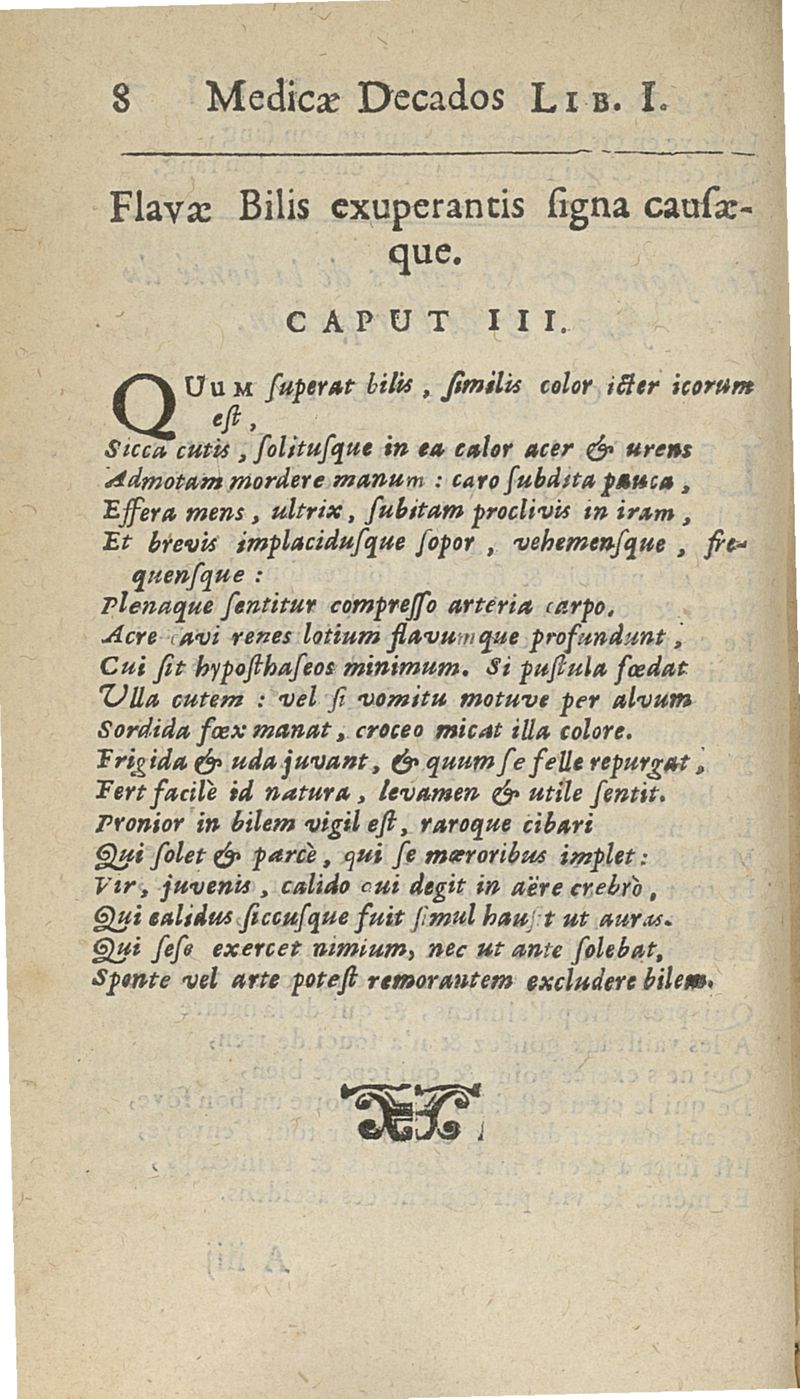 8 Medicæ Decados LIB. I.
Flavæ Bilis exuperantis ſigna cauſæ-
que.
CAPUT III.
QUUM ſuperat bilis, ſimilis color icter icorum
eſt,
Sicca cutis, ſolituſque in ea calor acer & urens
Admotam mordere manum : caro ſubdita pauca,
Effera mens, ultrix, ſubitam proclivis in iram,
Et brevis implaciduſque ſopor, vehemenſque, fre-
quenſque :
Plenaque ſentitur compreſſo arteria carpo.
Acre cavi renes lotium flavumque profundunt,
Cui ſit hypoſthaſeos minimum. Si puſtula fœdat
Ulla cutem : vel ſi vomitu motuve per alvum
Sordida fœx manat, croceo micat illa colore.
Frigida & uda juvant, & quum ſe felle repurgat,
Fert facilè id natura, levamen & utile ſentit.
Pronior in bilem vigil eſt, raroque cibari
Qui ſolet & parcè, qui ſe mœroribus implet :
Vir, juvenis, calido cui degit in aëre crebrò,
Qui calidus ſiccuſque fuit ſimul hauſit ut auras.
Qui ſeſe exercet nimium, nec ut ante ſolebat,
Sponte vel arte poteſt remorantem excludere bilem.